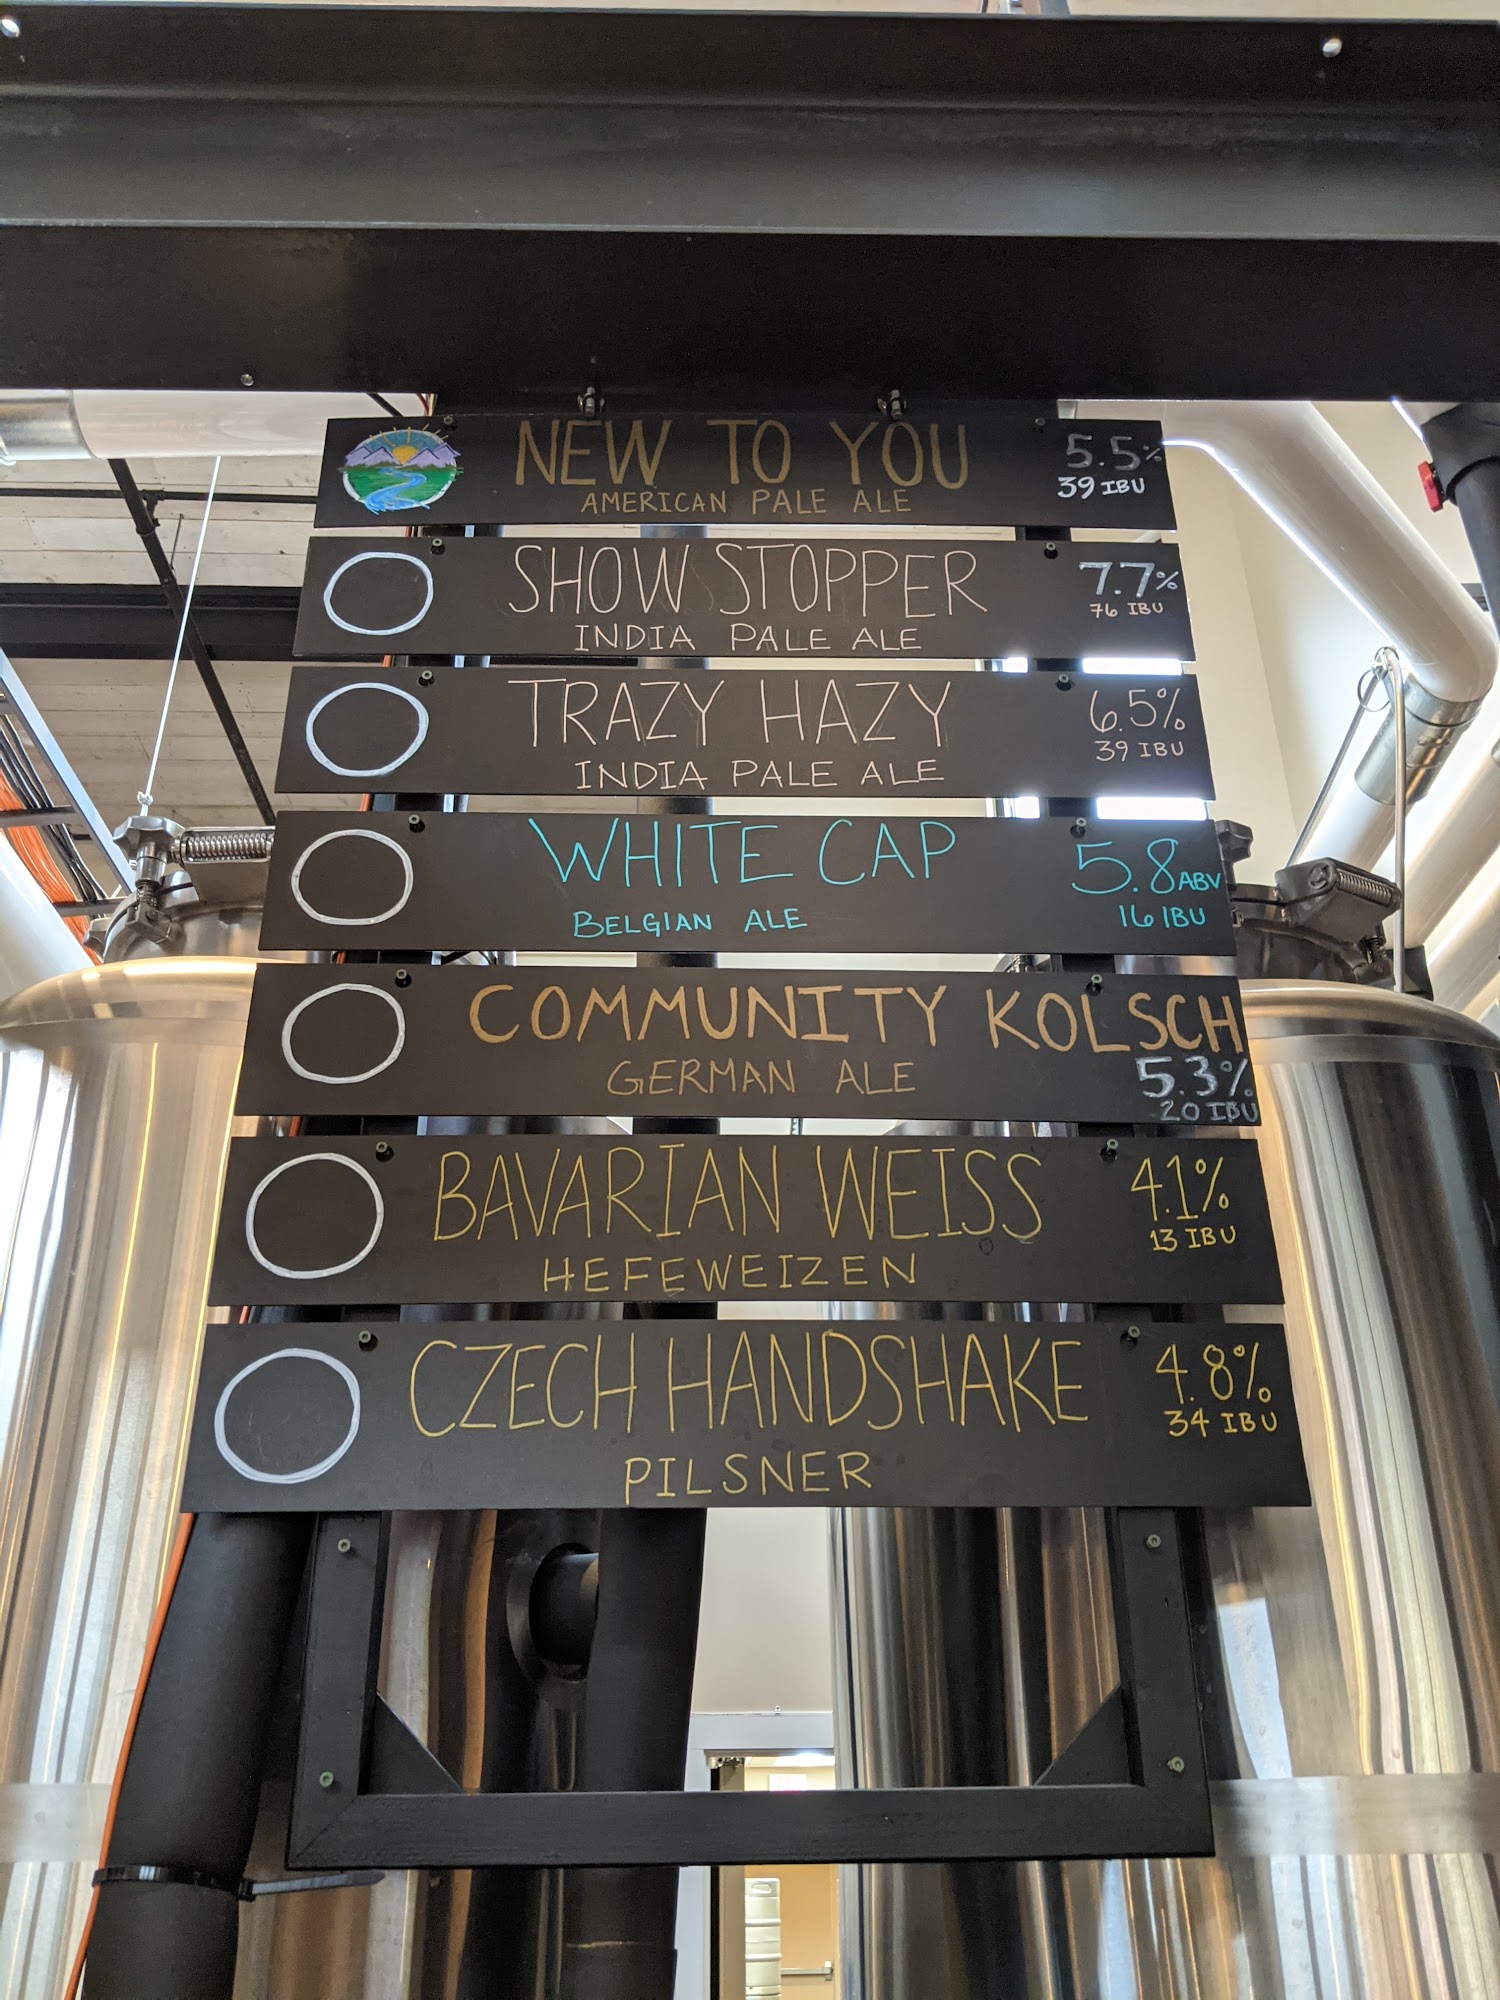 NEW TO YOU
AMERICAN PALE ALE
5.5%
39 IBU
SHOW STOPPER
INDIA PALE ALE
7.7%
76 IBU
TRAZY HAZY
INDIA PALE ALE
6.5%
39 IBU
WHITE CAP
BELGIAN ALE
5.8 ABV
16 IBU
COMMUNITY KOLSCH
GERMAN ALE
5.3%
20 IBU
BAVARIAN WEISS
HEFEWEIZEN
4.1%
13 IBU
CZECH HANDSHAKE
PILSNER
4.8%
34 IBU